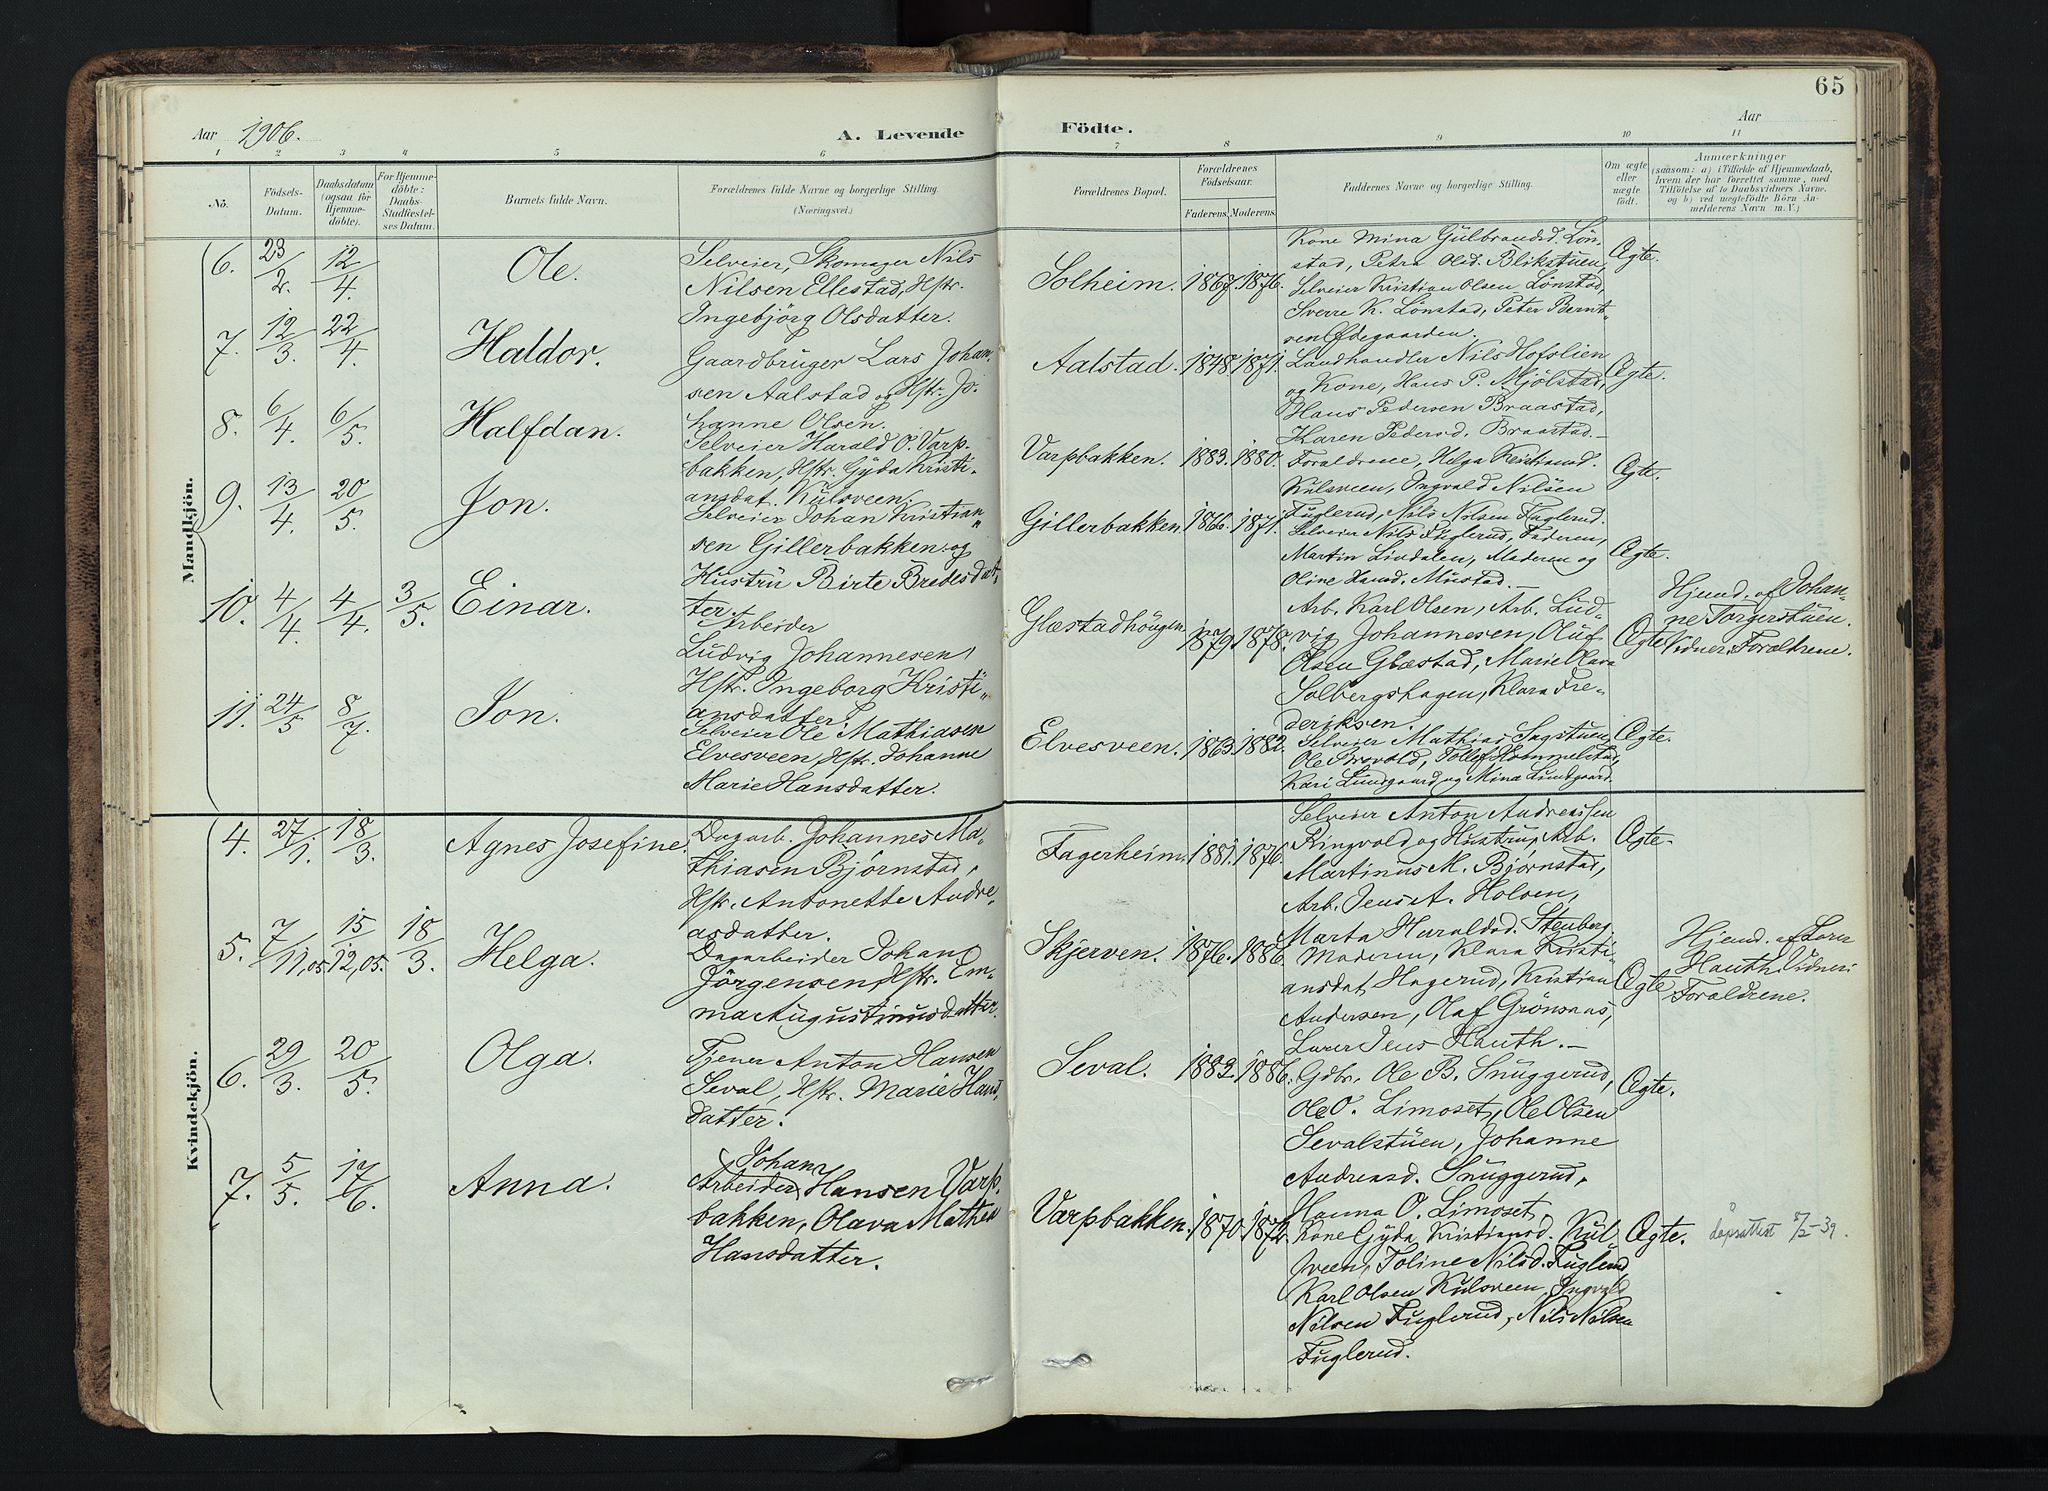 65
Aar 1906. A. Levende Födte. Aar
1 2 3 4 5 6 7 8 9 10 11
No. Födsels-Datum. Daabsdatum (ogsaa for Hjemmedöbte). For Hjemmedöbte: Daabs-Stadfæstelses Datum. Barnets fulde Navn. Forældrenes fulde Navne og borgerlige Stilling. (Næringsvei.) Forældrenes Bopæl. Forældrenes Födselsaar. Faderens. Moderens. Faddernes Navne og borgerlige Stilling. Om ægte eller uægte födt. Anmærkninger (saasom: a) i Tilfælde af Hjemmedaab, hvem der har forrettet samme, med Tilföielse af to Daabsvidners Navne, og b) ved uægtefödte Börn Anmelderens Navn m. V.)
Mandkjön.
6. 23/2. 12/4. Ole.
Selveier, Skomager Nils
Nilsen Ellestad, Hstr.
Ingebjörg Olsdatter.
Solheim. 1867. 1876.
Kone Mina Gulbrandsd. Lön-
stad, Petra Olsd. Blikstuen,
Selveier Kristian Olsen Lönstad,
Sverre K. Lönstad, Peter Bernt-
sen Ödegaarden.
Ægte.
7. 12/3. 22/4. Haldor.
Gaardbruger Lars Johan-
sen Aalstad og Hstr. Jo-
hanne Olsen.
Aalstad. 1848. 1871.
Landhandler Nils Hofslien
og Kone, Hans P. Mjölstad,
Hans Pedersen Braastad,
Karen Pedersd. Braastad.
Ægte.
8. 6/4. 6/5. Halfdan.
Selveier Harald O. Varp-
bakken, Hstr. Gyda Kristi-
ansdat. Kulsveen.
Varpbakken. 1883. 1880.
Foraldrene, Helga Kristiansd.
Kulsveen, Ingvald Nilsen
Fuglerud, Nils Nilsen Fuglerud.
Ægte.
9. 13/4. 20/5. Jon.
Selveier Johan Kristian-
sen Gillerbakken og
Hustru Birte Bredesdat-
ter
Gillerbakken. 1866. 1871.
Selveier Nils Fuglerud, Faderen,
Martin Lindalen, Moderen og
Oline Hansd. Mustad.
Ægte.
10. 4/4. 4/4. 3/5. Einar.
Arbeider
Ludvig Johannesen,
Hstr. Ingeborg Kristi-
ansdatter.
Glæstadhöugen. 1879. 1878.
Arb. Karl Olsen, Arb. Lud-
vig Johannesen, Oluf
Olsen Glæstad, Marie Clara
Solbergshagen, Klara Fre-
deriksen.
Ægte.
Hjemd. af Johan-
ne Torgerstuen.
Vidner: Foraldrene.
11. 24/5. 8/7. Jon.
Selveier Ole Mathiasen
Elvesveen, Hstr. Johanne
Marie Hansdatter.
Elvesveen. 1863. 1882.
Selveier Mathias Ingstuen,
Ole Provold, Tollef Hommelstad,
Kari Lundgaard og Mina Lundgaard.
Ægte.
Kvindekjön.
4. 27/1. 18/3. Agnes Josefine.
Dagarb. Johannes Ma-
thiasen Björnstad,
Hstr. Antonette Andre-
asdatter.
Fagerheim. 1881. 1876.
Selveier Anton Andreassen
Ringvold og Hustru, Arb.
Martinus M. Björnstad,
Arb. Jens A. Holsen,
Marta Haraldsd. Stenberg.
Ægte.
5. 7/11,05. 15/12,05. 18/3. Helga.
Dagarbeider Johan
Jörgensen, Hstr. Em-
ma Augustinusdatter.
Skjerven. 1876. 1886.
Moderen, Klara Kristi-
ansdat. Hagerud, Kristian
Andersen, Olaf Grönsnæs,
Lærer Jens Hauth.
Ægte.
Hjemd. af Lærer
Hauth. Vidner:
Foraldrene.
6. 29/3. 20/5. Olga.
Tjener Anton Hansen
Seval, Hstr. Marie Hans-
datter.
Seval. 1882. 1886.
Gdbr. Ole B. Snuggerud,
Ole O. Limoset, Ole Olsen
Sevalstuen, Johanne
Andreasd. Snuggerud,
Hanna O. Limoset.
Ægte.
7. 5/5. 17/6. Anna.
Johan
Arbeider Hansen Varp-
bakken, Olava Mathea
Hansdatter.
Varpbakken. 1870. 1872.
Kone Gyda Kristiansd. Kul-
sveen, Toline Nilsd. Fuglerud,
Karl Olsen Kulsveen, Ingvald
Nilsen Fuglerud, Nils Nilsen
Fuglerud.
Ægte.
döpsattest -39.